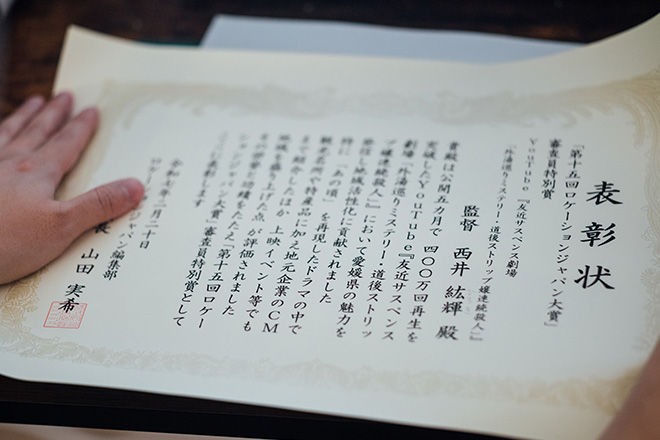 表彰状
「第十五回ロケーションジャパン大賞」
審査員特別賞
YouTube『友近サスペンス劇場
「外湯巡りミステリー・道後ストリップ嬢連続殺人」』
監督 西井 紘輝 殿
貴殿は公開五カ月で 四〇〇万回再生を
突破したYouTube『友近サスペンス
劇場「外湯巡りミステリー・道後ストリッ
プ嬢連続殺人」』において愛媛県の魅力を
発信し地域活性化に貢献されました
特に「あの頃」を再現したドラマの中で
観光名所や特産品に加え地元企業のCM
まで紹介したほか 上映イベント等でも
地域を盛り上げた点が評価されました
その栄誉と功績をたたえ「第十五回ロケー
ションジャパン大賞」審査員特別賞として
ここに表彰します
令和七年二月二十日
ロケーションジャパン編集部
長 山田 実希